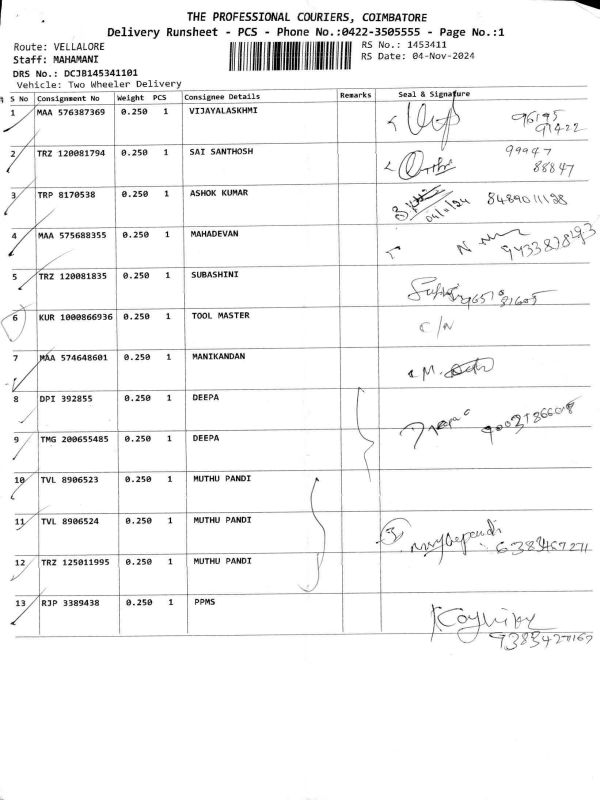 THE PROFESSIONAL COURIERS, COIMBATORE
Delivery Runsheet - PCS - Phone No.:0422-3505555 - Page No.:1
Route: VELLALORE RS No.: 1453411
Staff: MAHAMANI RS Date: 04-Nov-2024
DRS No.: DCJB145341101
Vehicle: Two Wheeler Delivery
S No Consignment No Weight PCS Consignee Details Remarks Seal & Signature
1 MAA 576387369 0.250 1 VIJAYALASKHMI 96195
91422
2 TRZ 120081794 0.250 1 SAI SANTHOSH 99947
88847
3 TRP 8170538 0.250 1 ASHOK KUMAR 04/11/24 8489011128
4 MAA 575688355 0.250 1 MAHADEVAN
5 TRZ 120081835 0.250 1 SUBASHINI
6 KUR 1000866936 0.250 1 TOOL MASTER C/N
7 MAA 574648601 0.250 1 MANIKANDAN
8 DPI 392855 0.250 1 DEEPA
9 TMG 200655485 0.250 1 DEEPA
10 TVL 8906523 0.250 1 MUTHU PANDI
11 TVL 8906524 0.250 1 MUTHU PANDI
12 TRZ 125011995 0.250 1 MUTHU PANDI 6383467271
13 RJP 3389438 0.250 1 PPMS